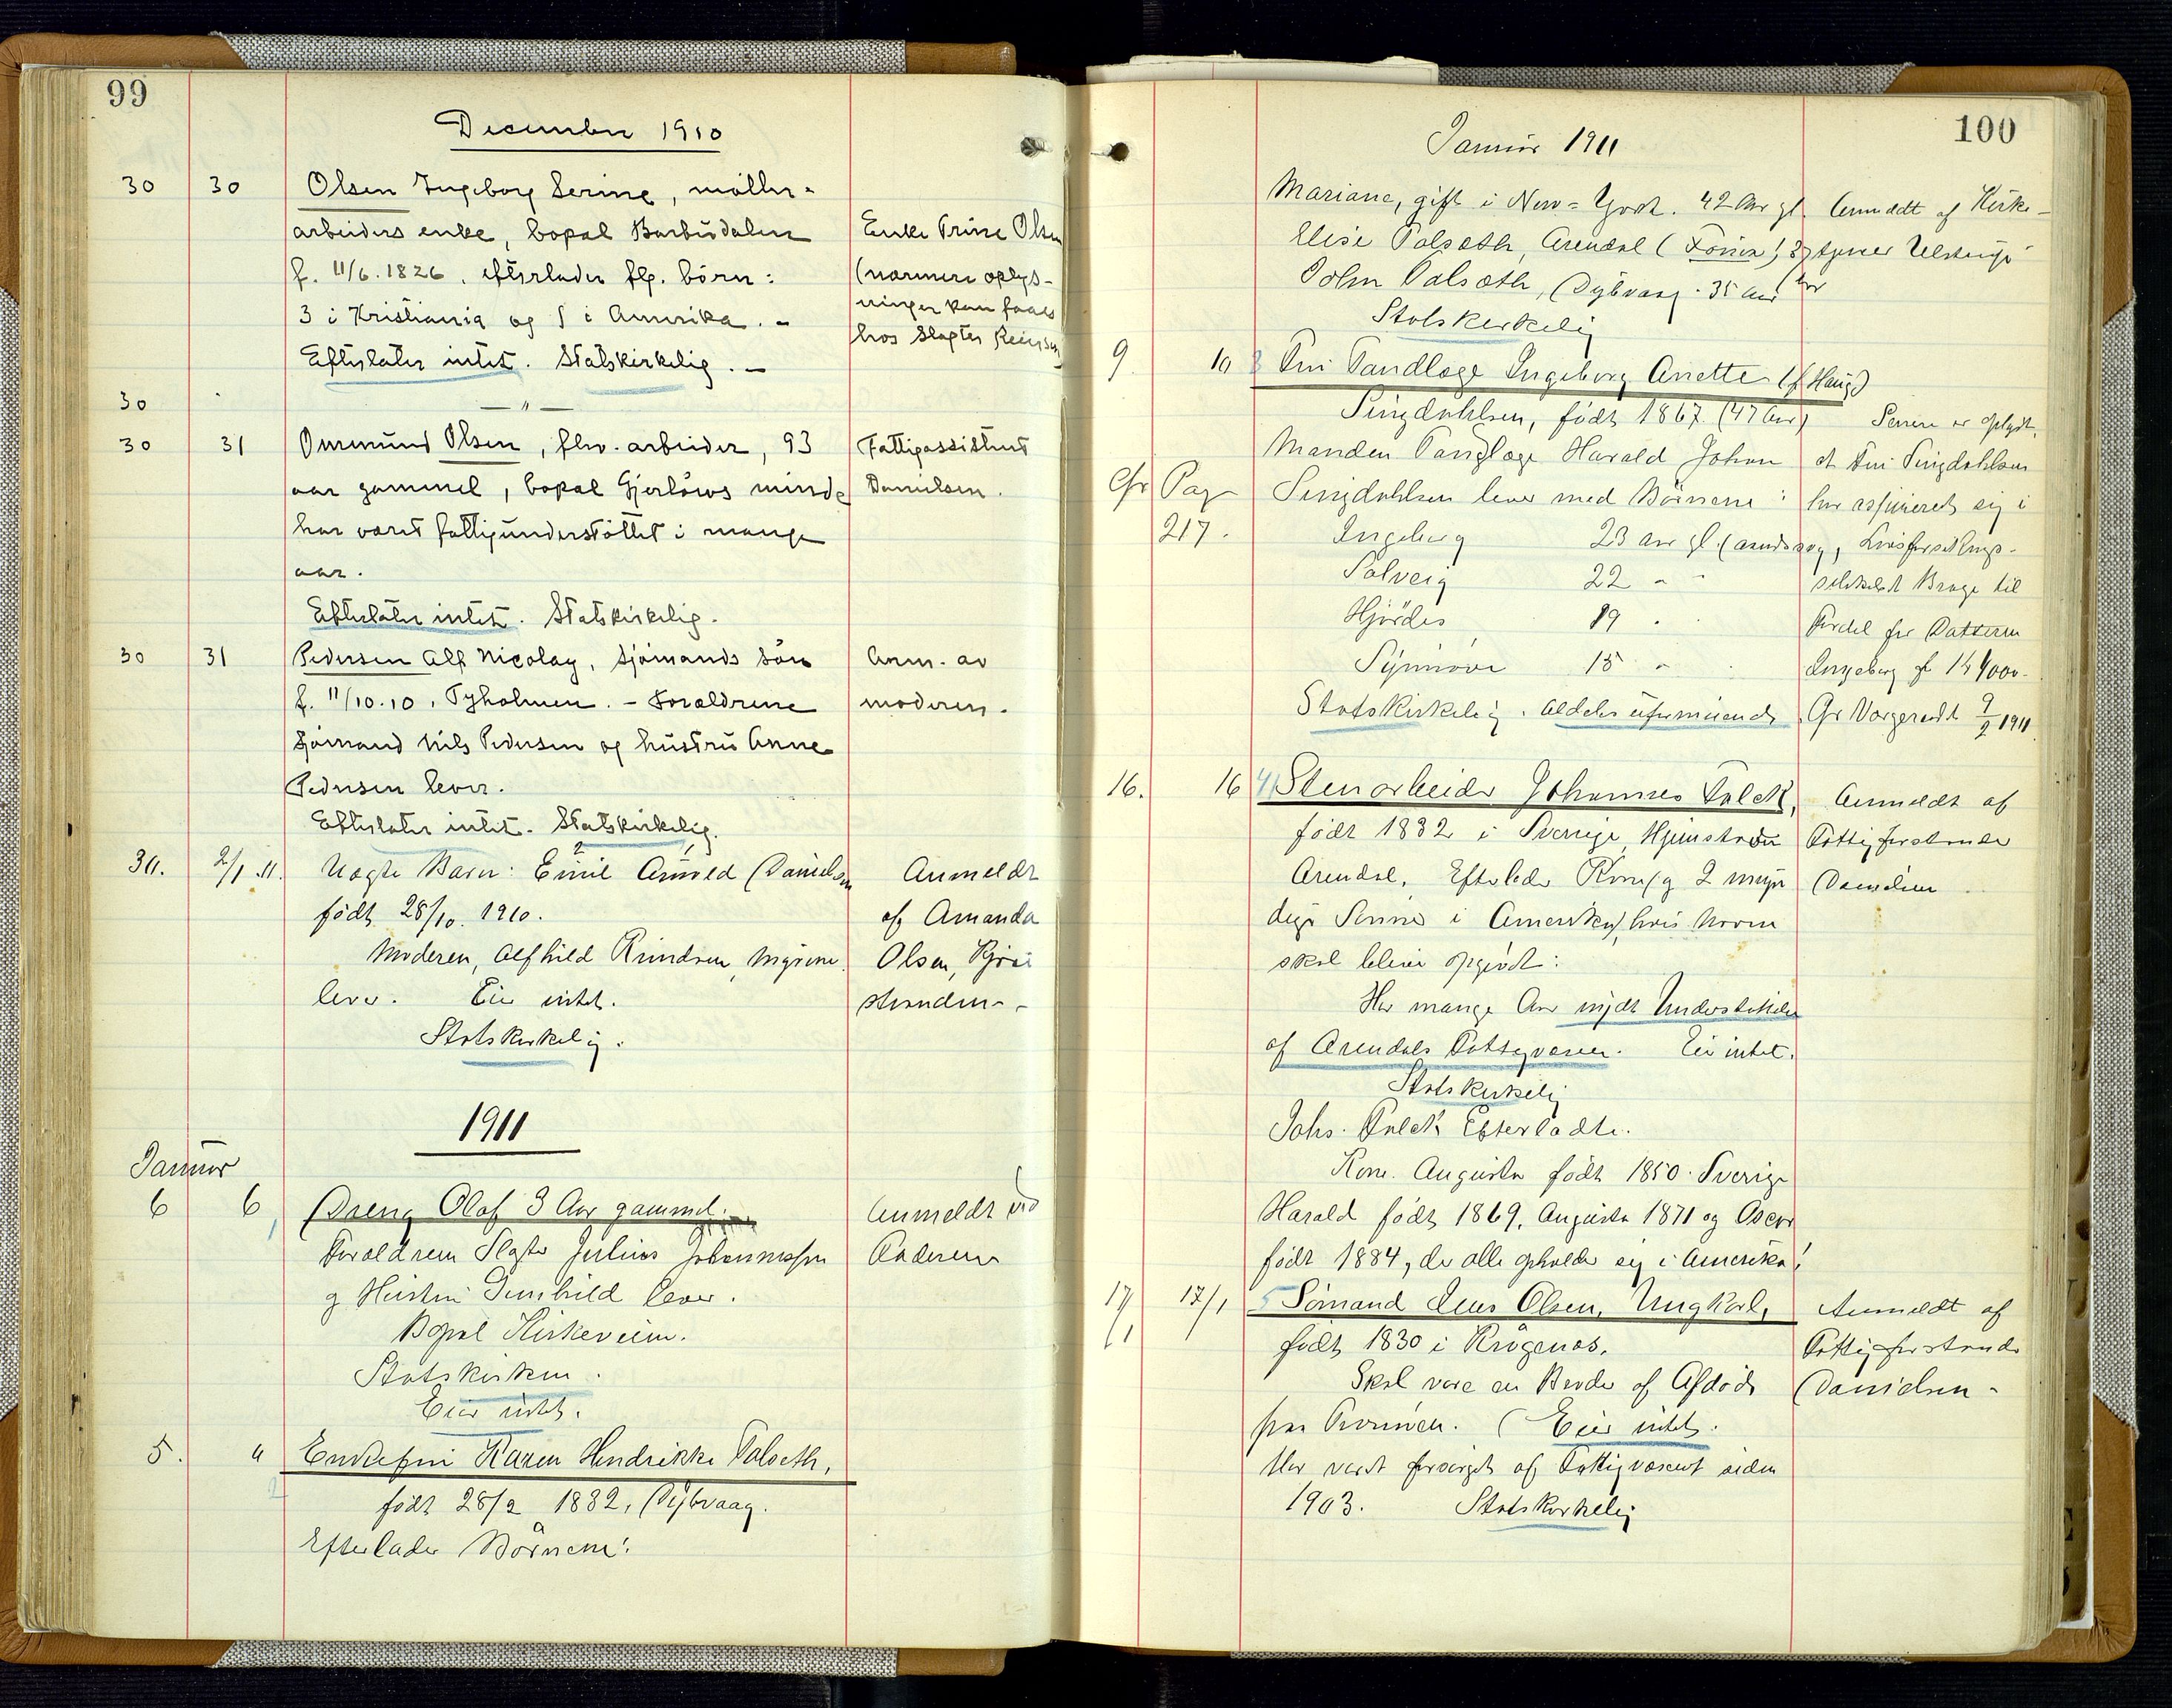 99
December 1910
30 30 Olsen Ingeborg Serine, møller-
arbeiders enke, bopæl Barbudalen
f. 11/6.1826, efterlader flg. børn:
3 i Kristiania og 1 i Amerika. -
Efterlater intet. Statskirkelig. -
Enke Trine Olsen
(nærmere oplys-
ninger kan faaes
hos Slagter Reiersen
30 - " -
30 31 Omund Olsen, fhv. arbeider, 93
aar gammel, bopæl Gjerløws minde
har været fattigunderstøttet i mange
aar.
Efterlater intet. Statskirkelig.
Fattigassistent
Danielsen.
30 31 Pedersen Alf Nicolay, sjømands søn
f. 11/10.10, Tyholmen. - Forældrene
Sjømand Nils Pedersen og hustru Anne
Pedersen lever.
Efterlater intet. Statskirkelig.
Anm. av
moderen.
30. 2/1.11. Uægte Barn: Emil Arnold Danielsen
født 28/10.1910.
Moderen, Alfhild
lever. Eier intet.
Statskirkelig.
Anmeldt
af Amanda
Olsen,
stranden -
1911
Januar
6 6 1 Dreng Olaf 3 Aar gammel.
Forældrene Slagter Julius Johannessen
og Hustru Gunhild lever.
Bopæl Kirkeveien.
Statskirken.
Eier intet.
Anmeldt ved
Faderen
5. " 2 Enkefru Karen Hendrikke Falseth,
født 28/2 1832, Dybvaag.
Efterlader Børnene:
100
Januar 1911
Mariane, gift i New-York. 42 Aar gl.
Elise Falseth, Arendal (Frøken) 37 Aar
John Falseth, Dybvaag. 35 Aar
Statskirkelig
Anmeldt af Kirke-
tjener Ulstrup
9. 10 3 Fru Tandlæge Ingeborg Anette (f. Haug)
Singdahlsen, født 1867 (47 Aar)
Manden Tanglæge Harald Johan
Singdahlsen lever med Børnene:
Ingeborg 23 aar gl.
Solveig 22 " "
Hjørdis 19 "
Synnøve 15 "
Statskirkelig. Aldeles uformuende
Cfr Pag
217.
Senere er oplyst,
at Fru Singdahlsen
har assureret sig i
Livsforsikrings-
selskabet Brage til
Fordel for Datteren
Ingeborg for 4000.
1911
16. 16 4 Stenarbeider Johannes Falck,
født 1832 i Sverige, Hjemsted
Arendal. Efterlader Kone og 2 myn
dige Sønner i Amerika, hvis Navne
skal blive opgivet:
Har mange Aar nydt Understøttelse
af Arendals Fattigvæsen. Eier intet.
Statskirkelig
Johs. Falcks Efterladte.
Kone. Augusta født 1850. Sverige
Harald født 1869, Augusta 1871 og Oscar
født 1884, der alle opholder sig i Amerika!
Anmeldt af
Fattigforstander
Danielsen
17/1 17/1 5 Sømand Jens Olsen, Ungkarl,
født 1830 i Krøgenæs.
Skal være en Broder af Afdøde
paa Tromøen. Eier intet.
Har været forsørget af Fattigvæsenet siden
1903. Statskirkelig
Anmeldt af
Fattigforstander
Danielsen -